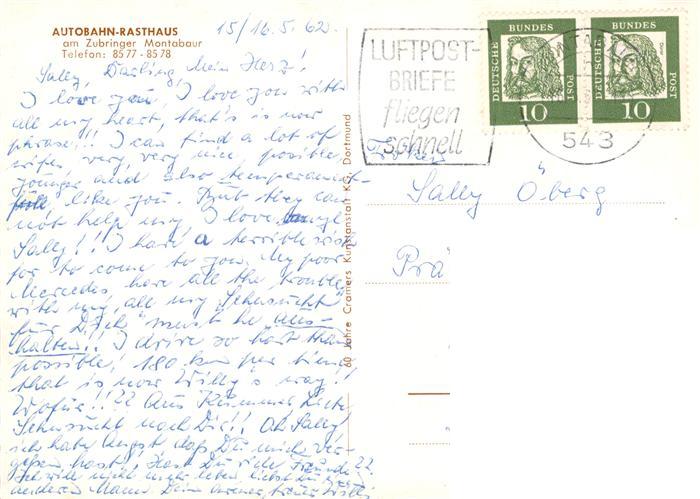 AUTOBAHN-RASTHAUS
am Zubringer Montabaur
Telefon: 85 77 - 85 78
15/16.5.62.
Sally, Darling, Mein Herz!
I love you, I love you with
all my heart, that's is now
phrase!! I can find a lot of
wifes very, very nice, possible
younger and also temperament-
full like you. But they can
not help my, I love my
Sally!! I had a terrible way
for to come to you. My poor
Mercedes have all the trouble
with my, all my "Sehnsucht
für Dich" must he aus-
halten. I drive so hart than
possible, 180 km per time,
that is now Willy's way!
Wofür!!?? Aus Kummer
Sehnsucht nach Dir!! Oh Sally
ich habe Angst, daß Du mich ver-
gessen hast! Hast Du viele Freunde??
Ich will nicht mehr leben, liebst Du
anderen Mann. Dein armer, treuer Willi
60 Jahre Cramers Kunstanstalt KG, Dortmund
LUFTPOST-
BRIEFE
fliegen
schnell
543
DEUTSCHE BUNDES POST
10
DEUTSCHE BUNDES POST
10
Sally Öberg
Prä